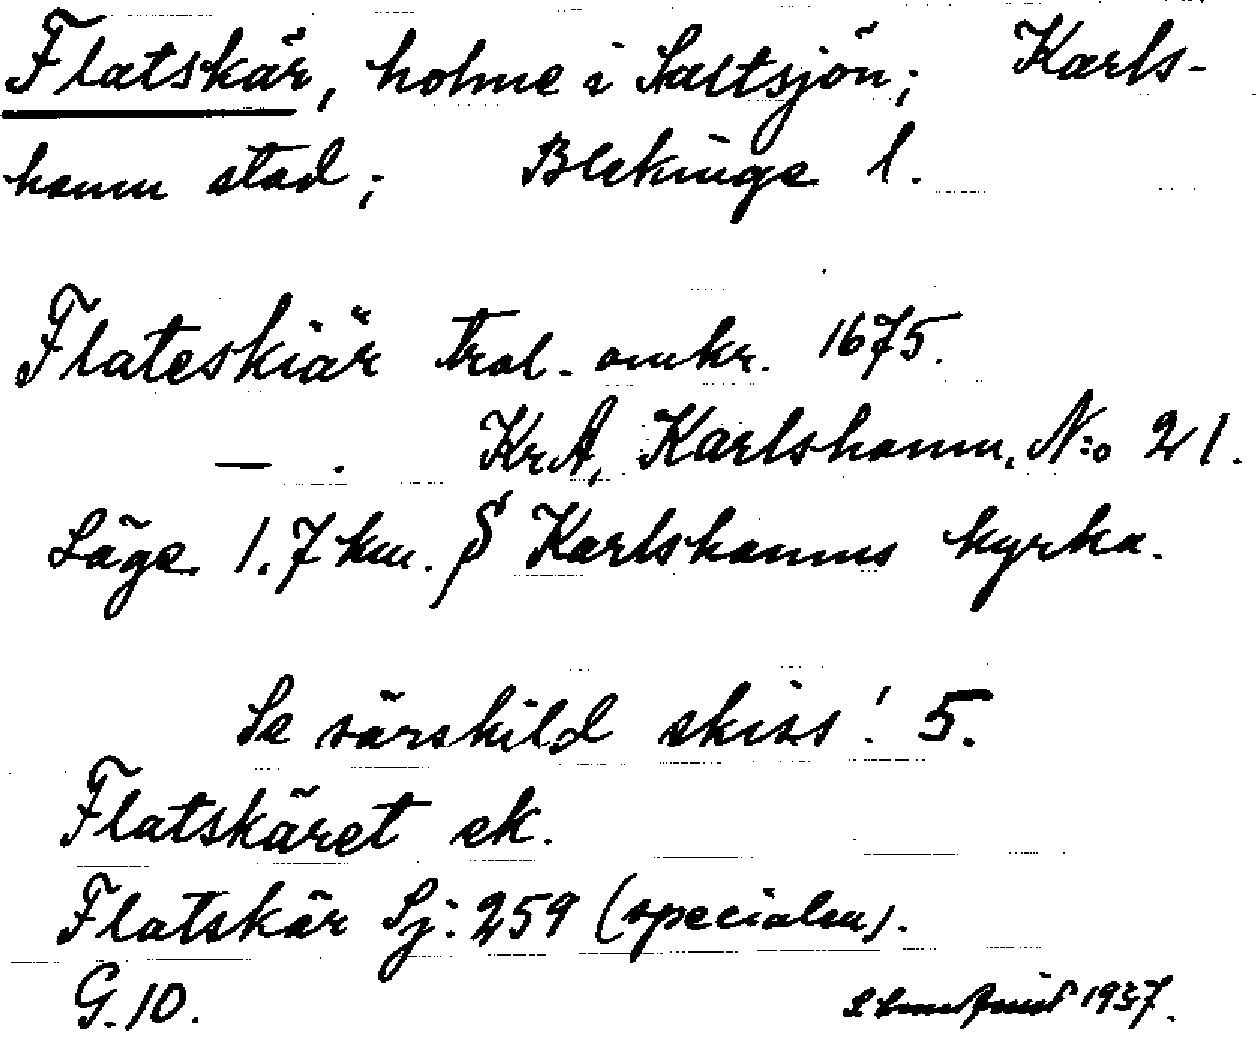 Flatskär, holme i Saltsjön; Karls-
hamn stad; Blekinge l.
Flateskiär trol. omkr. 1675.
— . KrA, Karlshamn, N:o 21.
Läge 1.7 km. S Karlshamns kyrka.
Se särskild skiss! 5.
Flatskäret ek.
Flatskär Sj: 259 (specialen).
G. 10.
1937.